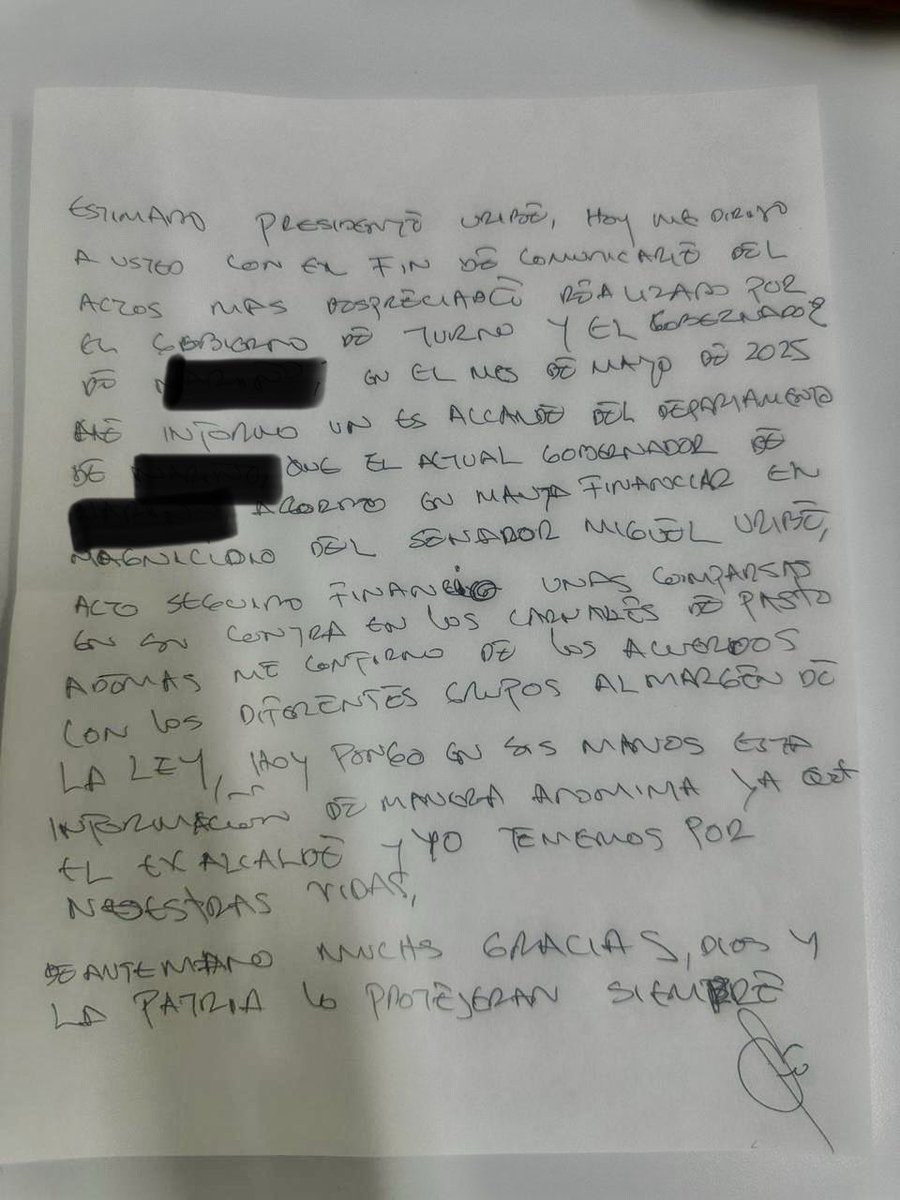 ESTIMADO PRESIDENTE URIBE, HOY ME DIRIJO
A USTED CON EL FIN DE COMUNICARLE DEL
ACTOS MAS DESPRECIABLE REALIZADO POR
EL GOBIERNO DE TURNO Y EL GOBERNADOR
DE EN EL MES DE MAYO DE 2025
ME INFORMO UN EX ALCALDE DEL DEPARTAMENTO
DE QUE EL ACTUAL GOBERNADOR DE
ACORDO EN MANTA FINANCIAR EN
MAGNICIDIO DEL SENADOR MIGUEL URIBE,
ACTO SEGUIDO FINANCIO UNAS COMPARSAS
EN SU CONTRA EN LOS CARNAVALES DE PASTO
ADEMAS ME CONFIRMO DE LOS ACUERDOS
CON LOS DIFERENTES GRUPOS AL MARGEN DE
LA LEY, HOY PONGO EN SUS MANOS ESTA
INFORMACION DE MANERA ANONIMA YA QUE
EL EX ALCALDE Y YO TEMEMOS POR
NUESTRAS VIDAS,
DE ANTEMANO MUCHS GRACIAS, DIOS Y
LA PATRIA LO PROTEJERAN SIEMPRE